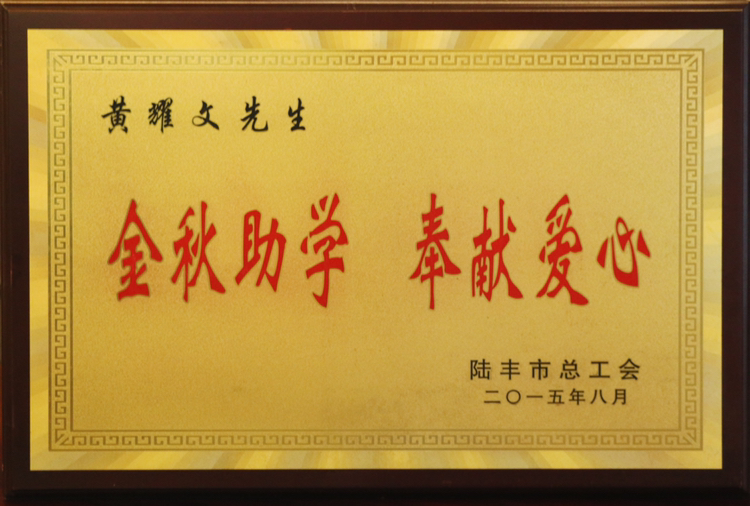 黄耀文先生
金秋助学 奉献爱心
陆丰市总工会
二〇一五年八月